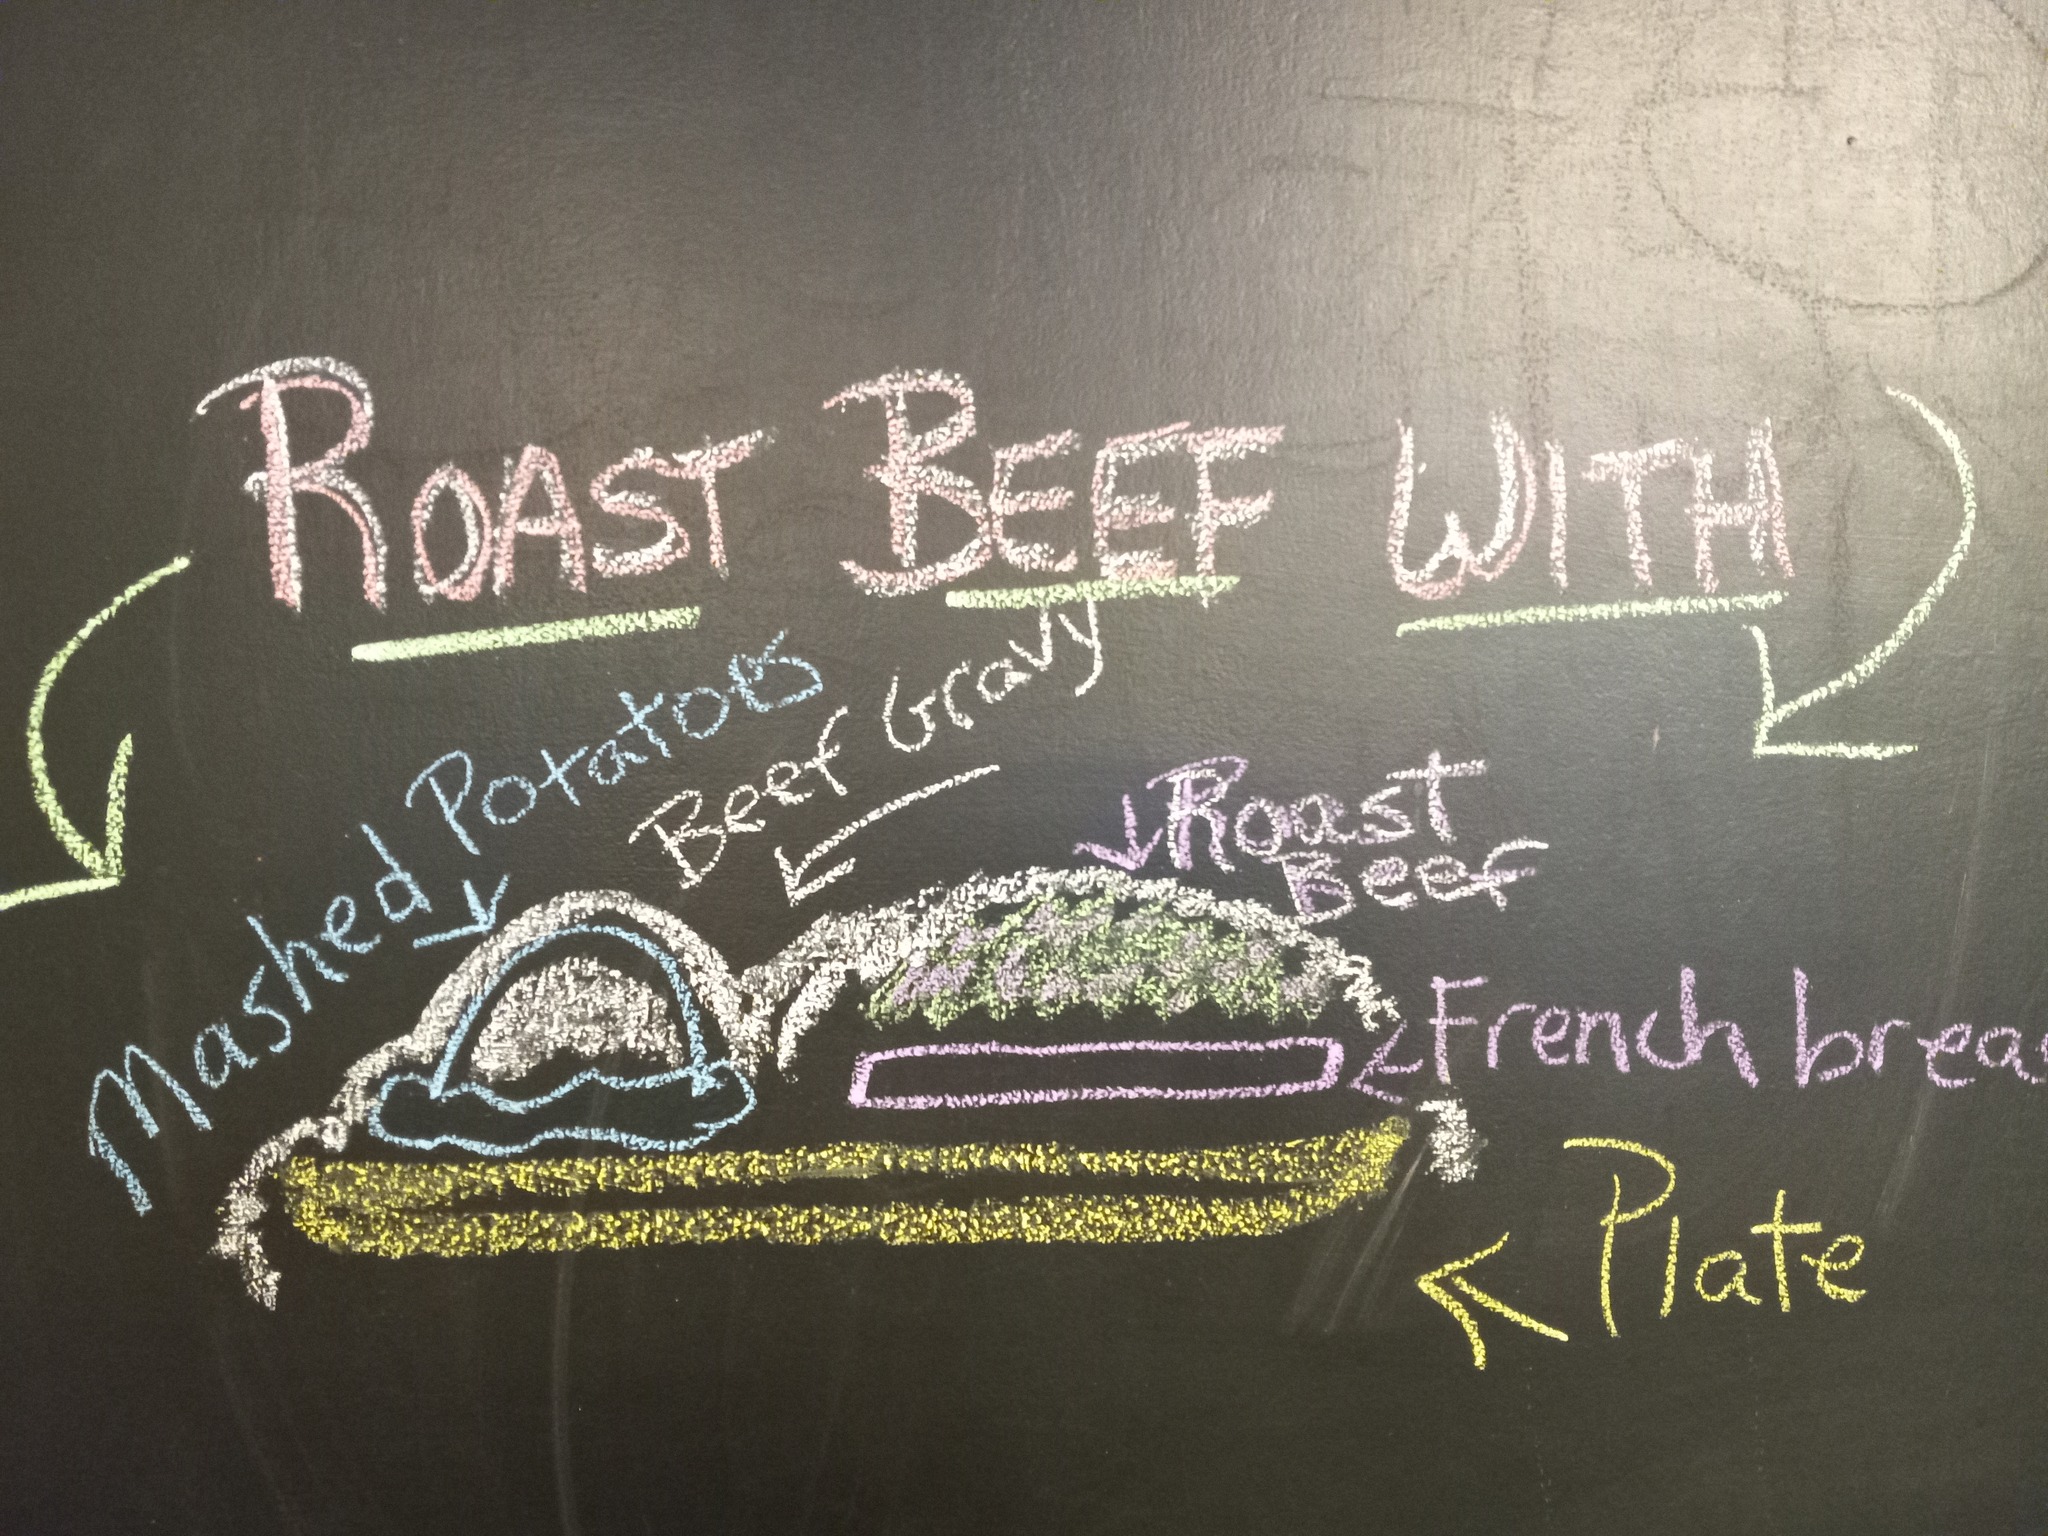 ROAST BEEF WITH
Mashed Potatoes
Beef Gravy
Roast
Beef
French brea
Plate